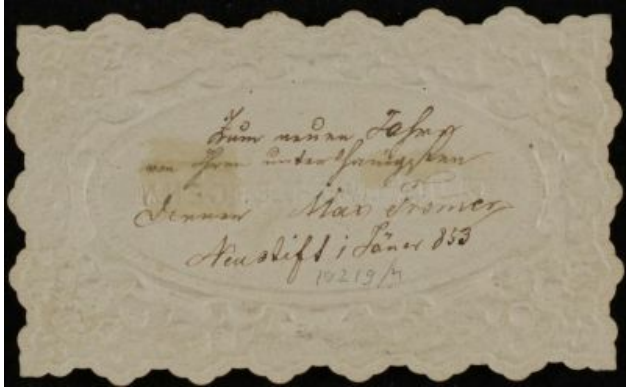 Zum neuen Jahre
von Ihren unterthänigsten
Diener Max Tromer
Neustift 1 Jäner 853
19219/